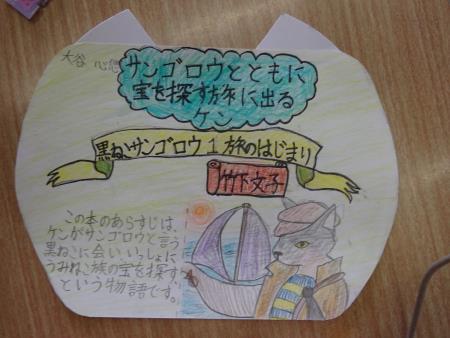 大谷 心
サンゴロウとともに
宝を探す旅に出る
ケン
黒ねこサンゴロウ1 旅のはじまり
竹下文子
この本のあらすじは、
ケンがサンゴロウと言う
黒ねこに会い、いっしょに
うみねこ族の宝を探す
という物語です。